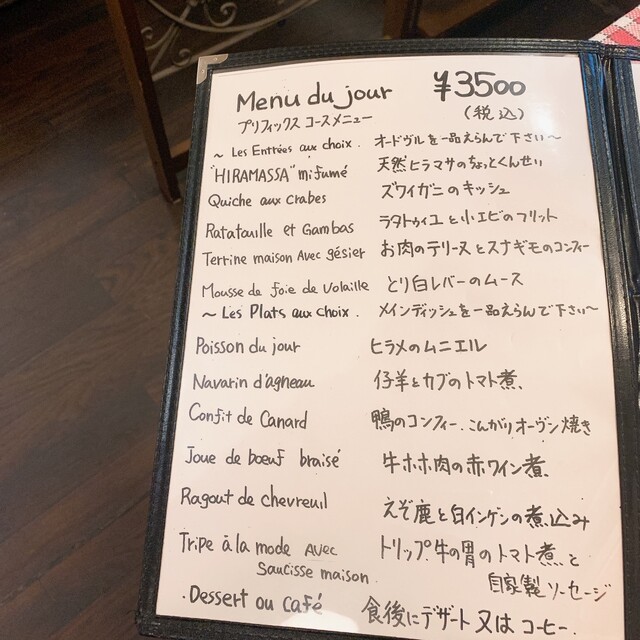 Menu du jour ¥3500
プリフィックス コースメニュー (税込)
～ Les Entrées aux choix. オードヴルを一品えらんで下さい～
"HIRAMASSA" mifumé 天然ヒラマサのちょっとくんせい
Quiche aux crabes ズワイガニのキッシュ
Ratatouille et Gambas ラタトゥイユと小エビのフリット
Terrine maison Avec gésier お肉のテリーヌとスナギモのコンフィー
Mousse de foie de volaille とり白レバーのムース
～ Les Plats aux choix. メインディッシュを一品えらんで下さい～
Poisson du jour ヒラメのムニエル
Navarin d'agneau 仔羊とカブのトマト煮、
Confit de Canard 鴨のコンフィー、こんがりオーヴン焼き
Joue de bœuf braisé 牛ホホ肉の赤ワイン煮、
Ragout de chevreuil えぞ鹿と白インゲンの煮込み
Tripe à la mode Avec トリップ、牛の胃のトマト煮、と
Saucisse maison. 自家製ソーセージ
.Dessert ou café 食後にデザート又はコーヒー.